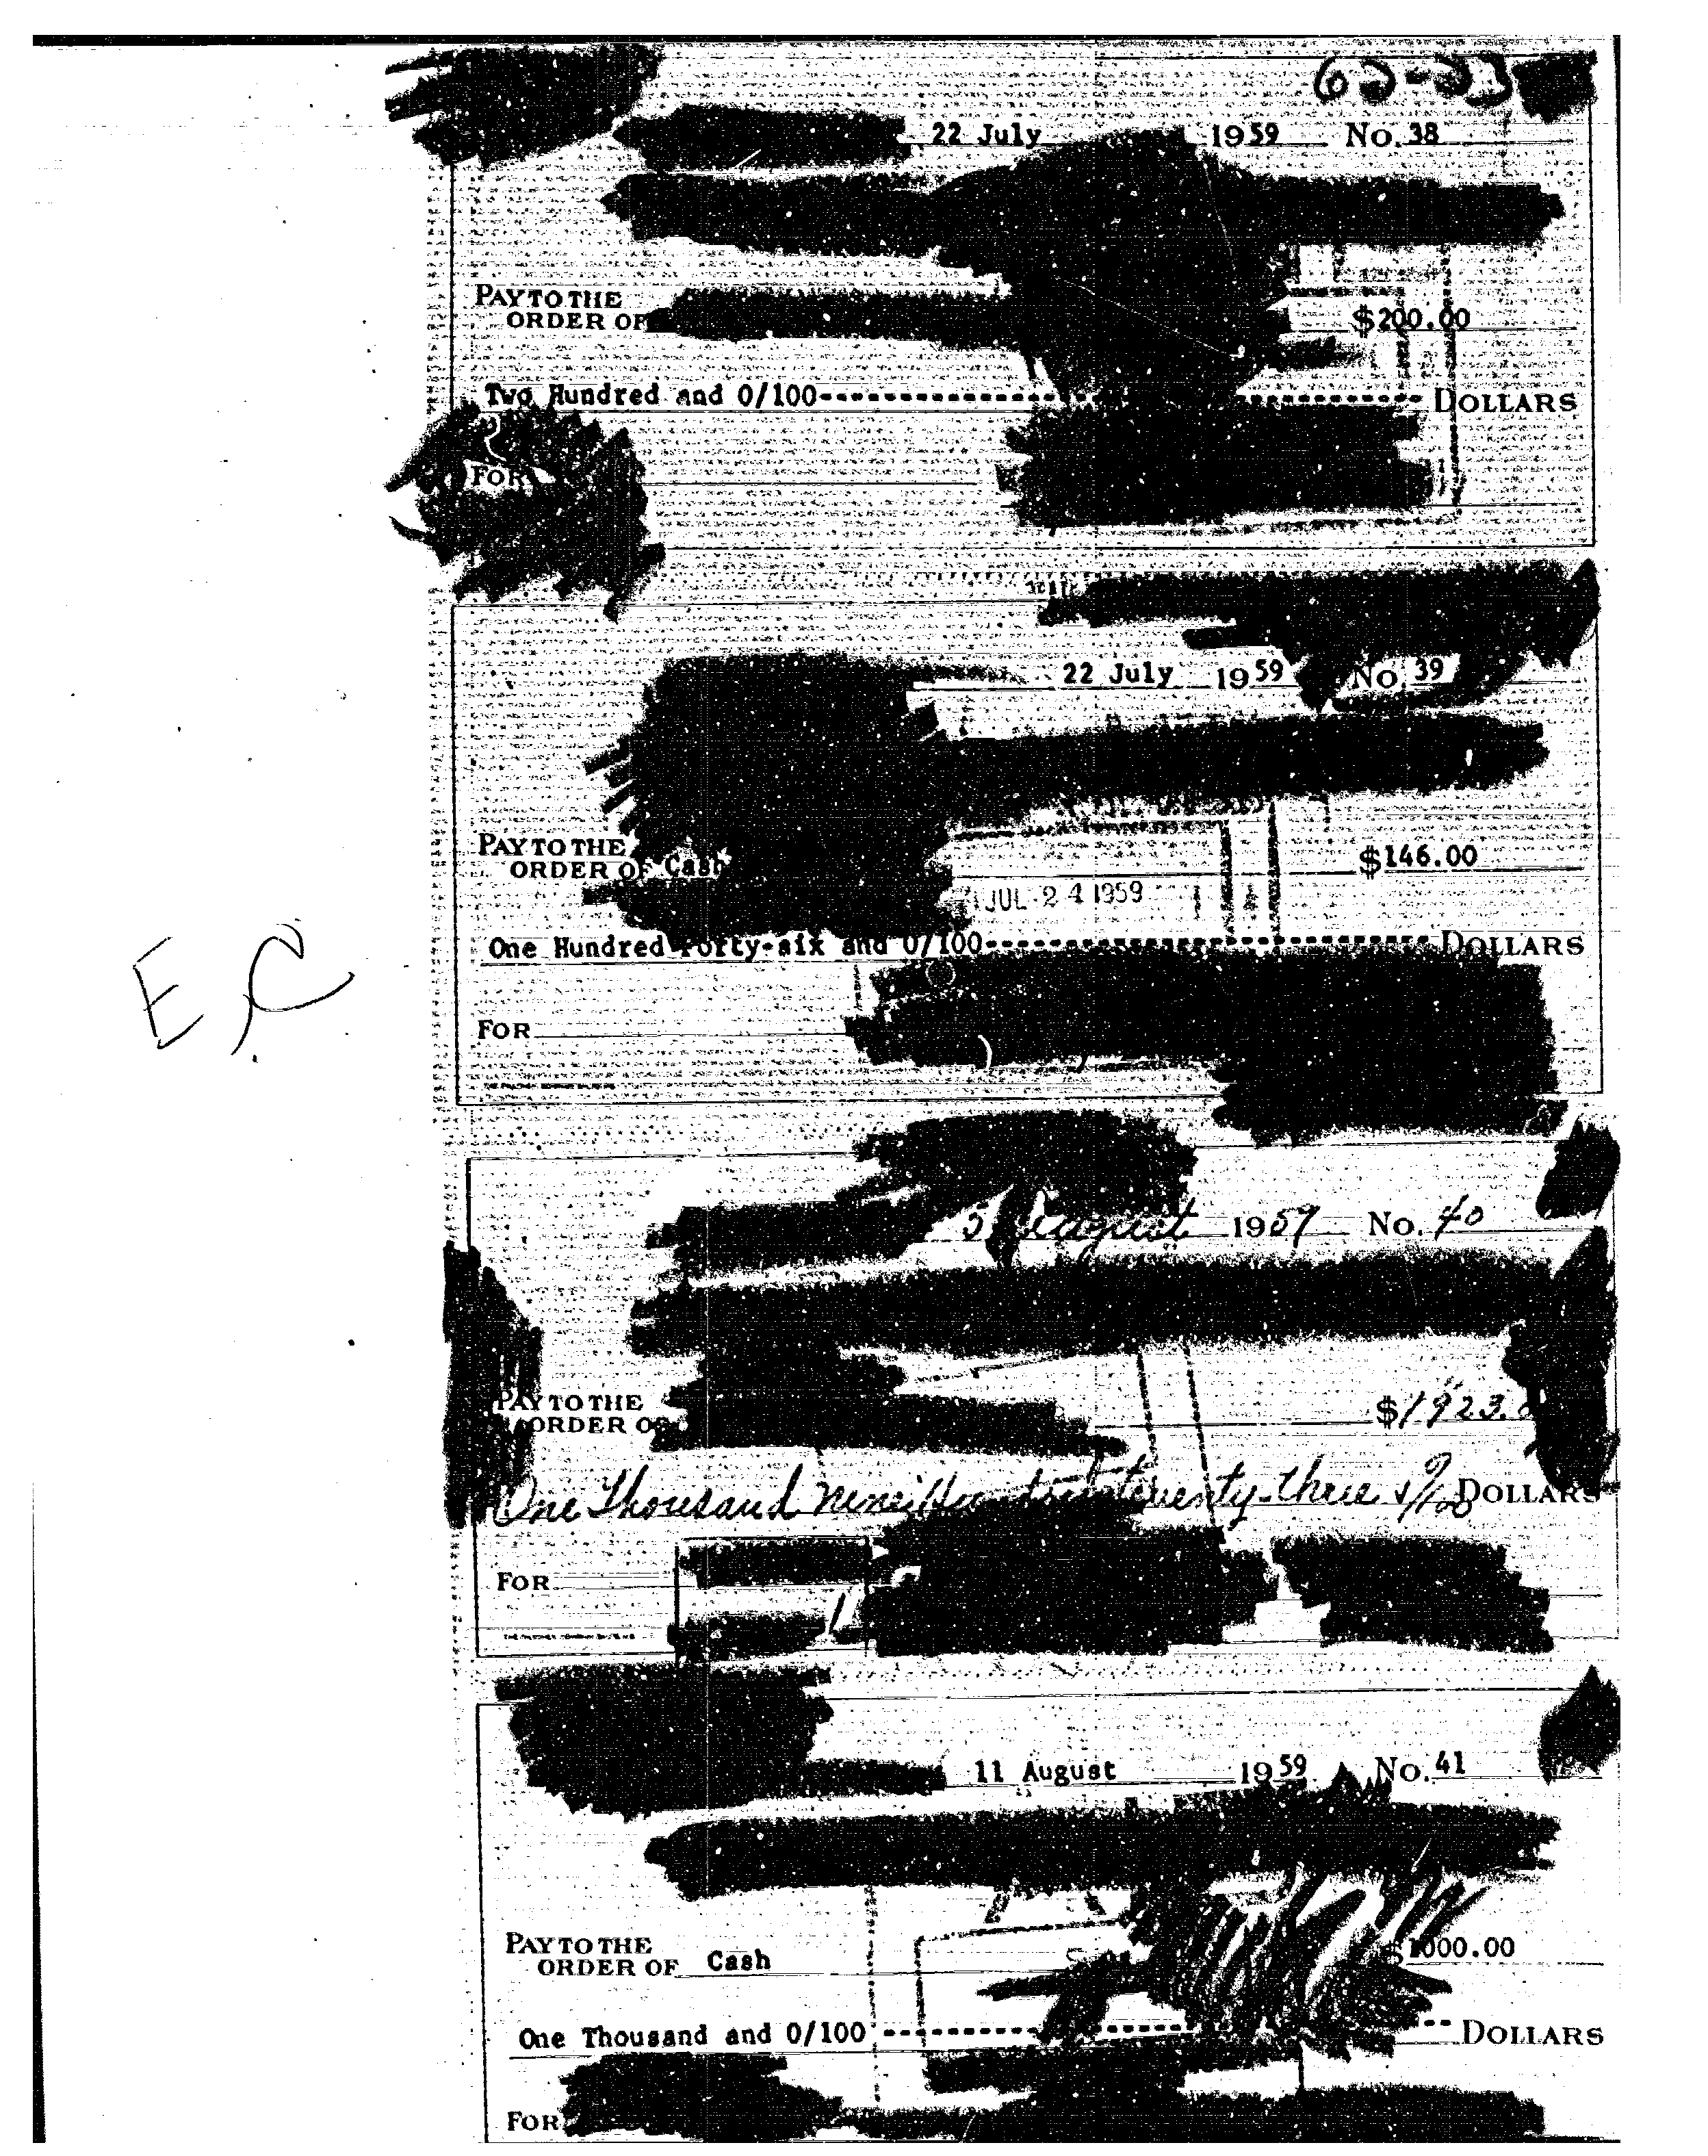 62-33
22 July 1959 No. 38
PAY TO THE
ORDER OF $200.00
Two Hundred and 0/100 DOLLARS
FOR
22 July 1959 No. 39
PAY TO THE
ORDER OF Cash $146.00
JUL 24 1959
One Hundred Forty-six and 0/100 DOLLARS
FOR
E,C
5 August 1959 No. 40
PAY TO THE
ORDER OF $1923.
One Thousand Nine Hundred twenty-three & 0/100 DOLLARS
FOR
11 August 1959 No. 41
PAY TO THE
ORDER OF Cash $1000.00
One Thousand and 0/100 DOLLARS
FOR